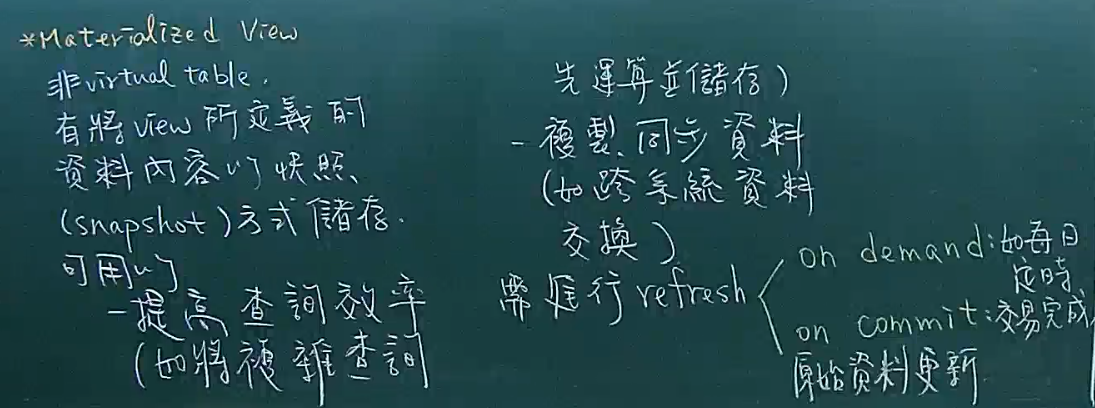 *Materialized View
非virtual table.
有將view所定義的
資料內容以快照
(snapshot)方式儲存.
可用以
-提高查詢效率
(如將複雜查詢
先運算並儲存)
-複製、同步資料
(如跨系統資料
交換)
需進行refresh
on demand:如每日
定時
on commit:交易完成
原始資料更新